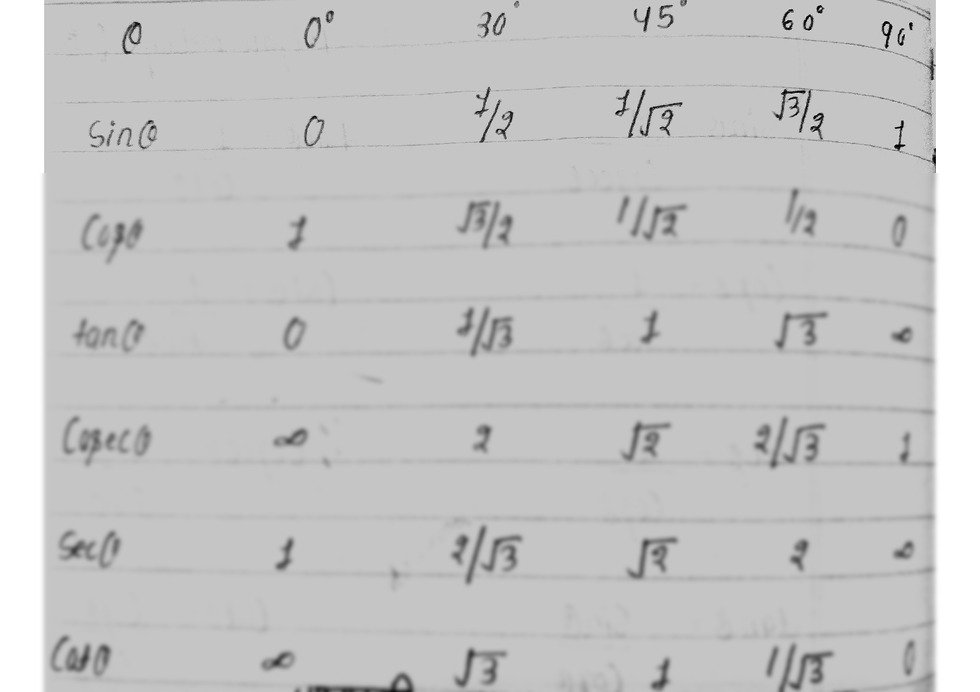 θ 0° 30° 45° 60° 90°
Sinθ 0 1/2 1/√2 √3/2 1
Cosθ 1 √3/2 1/√2 1/2 0
tanθ 0 1/√3 1 √3 ∞
Cosecθ ∞ 2 √2 2/√3 1
Secθ 1 2/√3 √2 2 ∞
Cotθ ∞ √3 1 1/√3 0